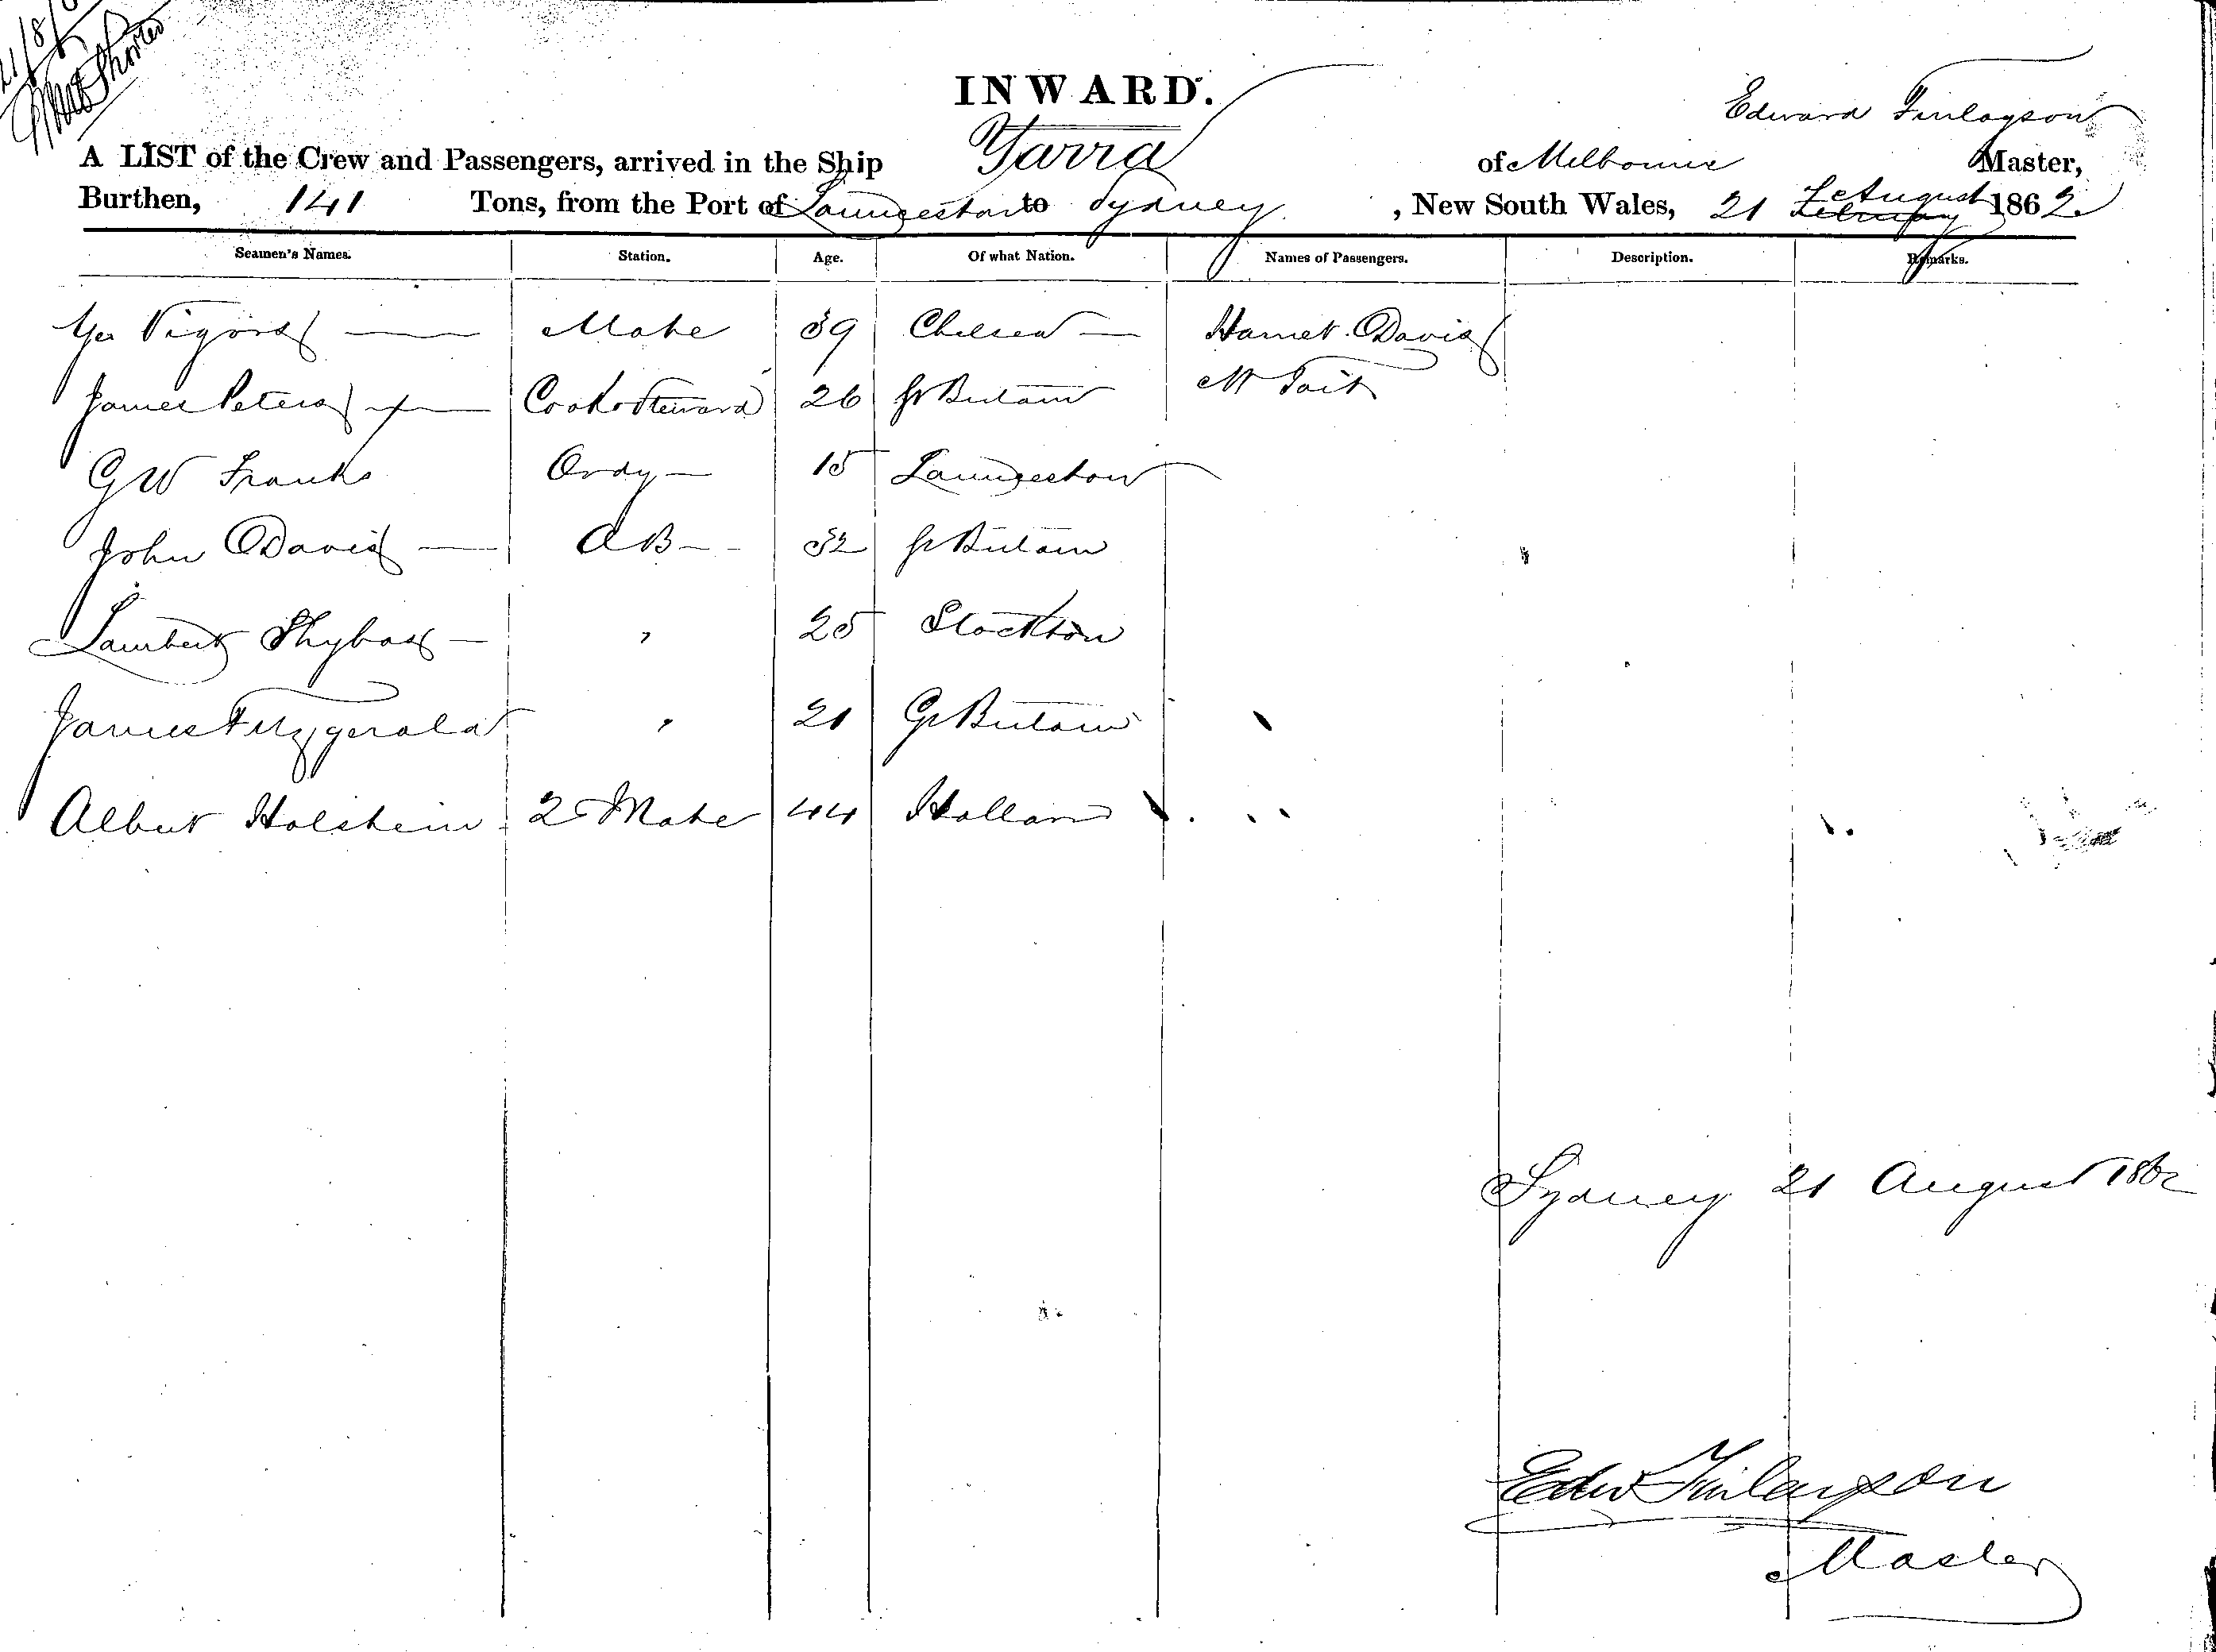 21/8/6
INWARD.
Edward Finlayson
A LIST of the Crew and Passengers, arrived in the Ship Yarra of Melbourne Master,
Burthen, 141 Tons, from the Port of Launceston to Sydney, New South Wales, 21 February August 1862.
Seamen's Names. Station. Age. Of what Nation. Names of Passengers. Description. Remarks.
Geo Vigors Mate 39 Chelsea Harriet Davis
James Peters Cook & Steward 26 Gr Britain Mr Tait
G W Franks Ordy 15 Launceston
John Davis A B 32 Gr Britain
Lambert 25 Stockton
James Fitzgerald 21 Gr Britain
Albert Holstein 2 Mate 44 Holland
Sydney 21 August 1862
Edwd Finlayson
Master